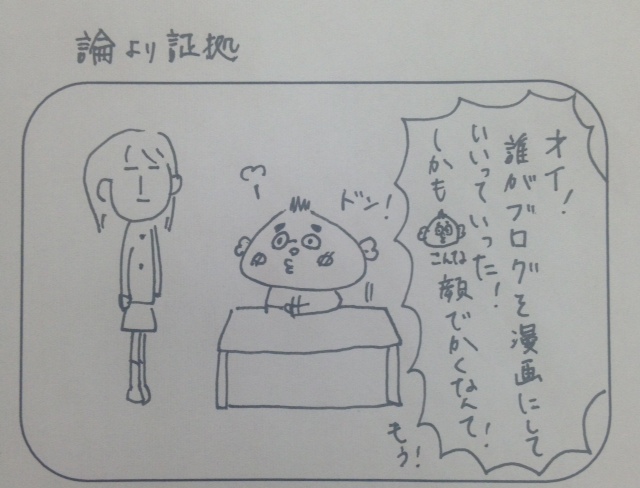 論より証拠
オイ!
誰がブログを漫画にして
いいっていった!
しかもこんな顔でかくなんて!
もう!
ドン!